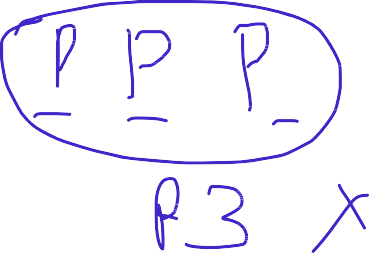 P P P
P3 X